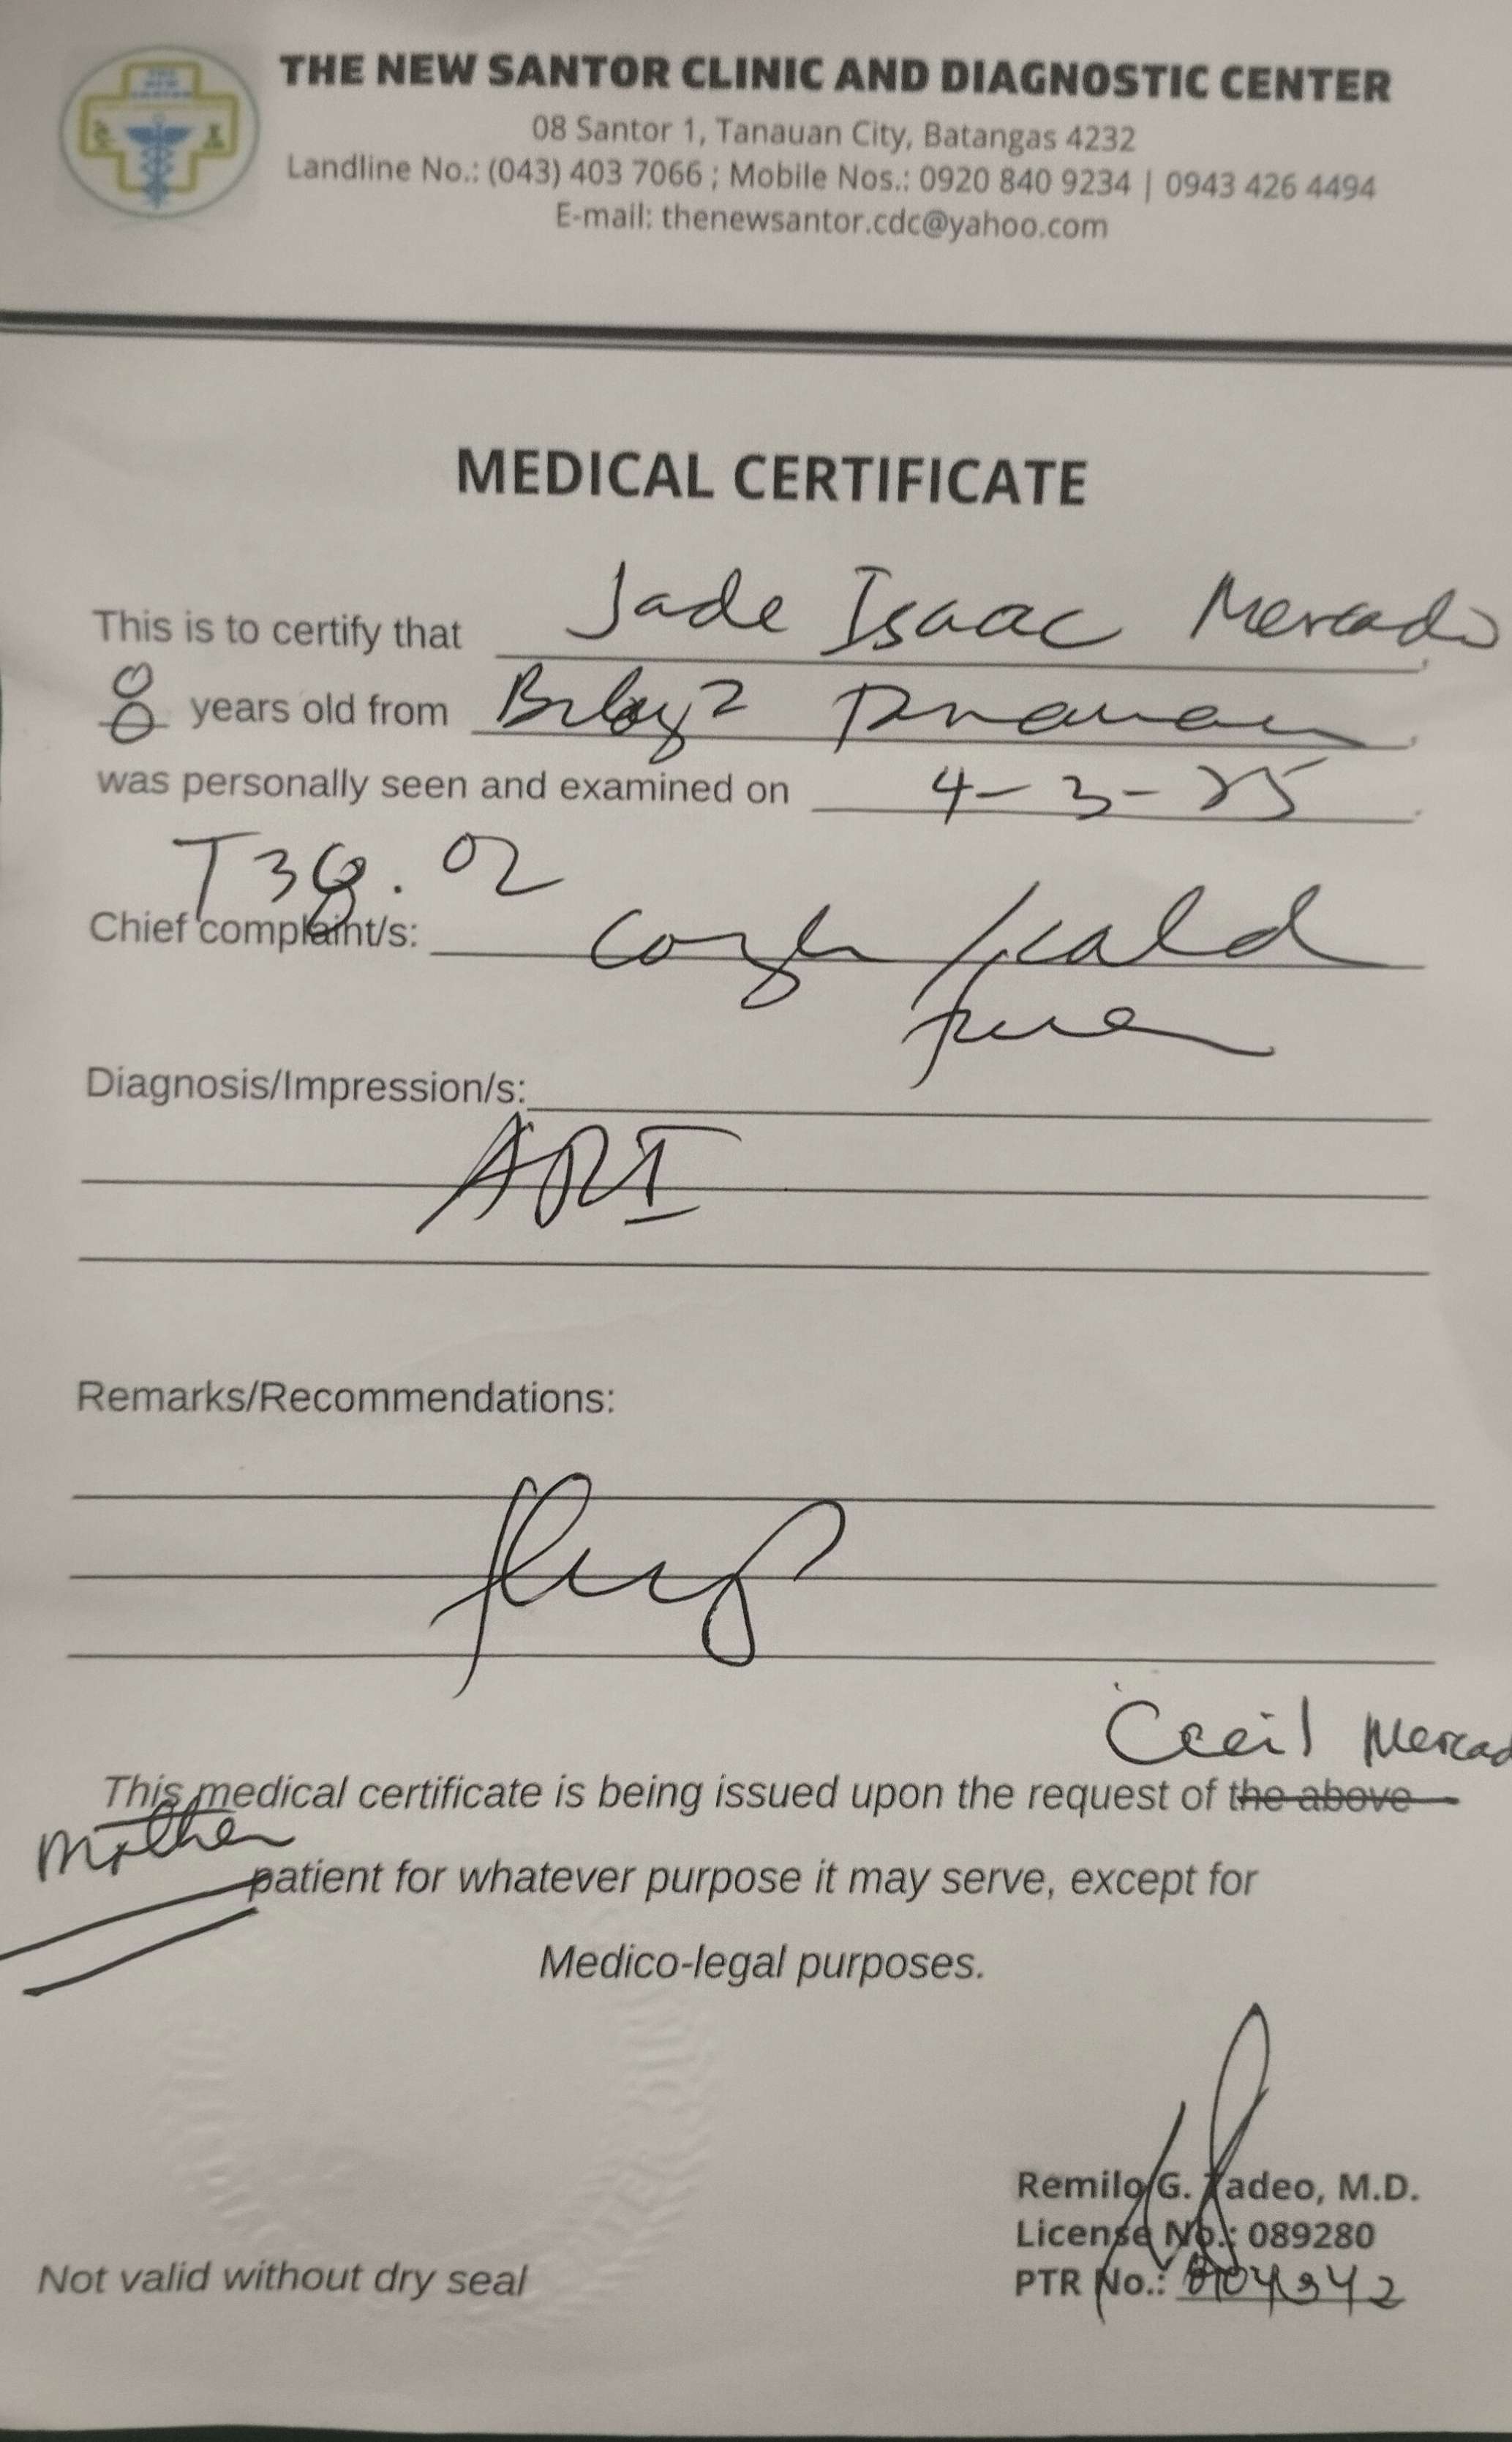 THE NEW SANTOR CLINIC AND DIAGNOSTIC CENTER
08 Santor 1, Tanauan City, Batangas 4232
Landline No.: (043) 403 7066 ; Mobile Nos.: 0920 840 9234 | 0943 426 4494
E-mail: thenewsantor.cdc@yahoo.com
MEDICAL CERTIFICATE
This is to certify that Jade Isaac Mercado
8 years old from
was personally seen and examined on 4-3-25
Chief complaint/s: cough / cold
fever
Diagnosis/Impression/s:
Remarks/Recommendations:
Cecil Mercad
This medical certificate is being issued upon the request of the above
Mother
patient for whatever purpose it may serve, except for
Medico-legal purposes.
Remilo G. Tadeo, M.D.
License No.: 089280
PTR No.:
Not valid without dry seal